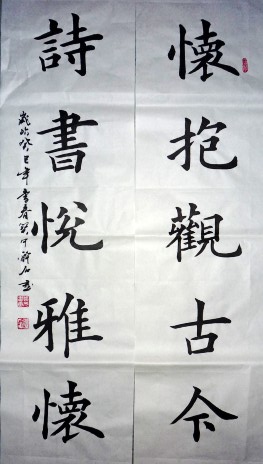 懷抱觀古今
詩書悅雅懷
歲次癸巳年春書